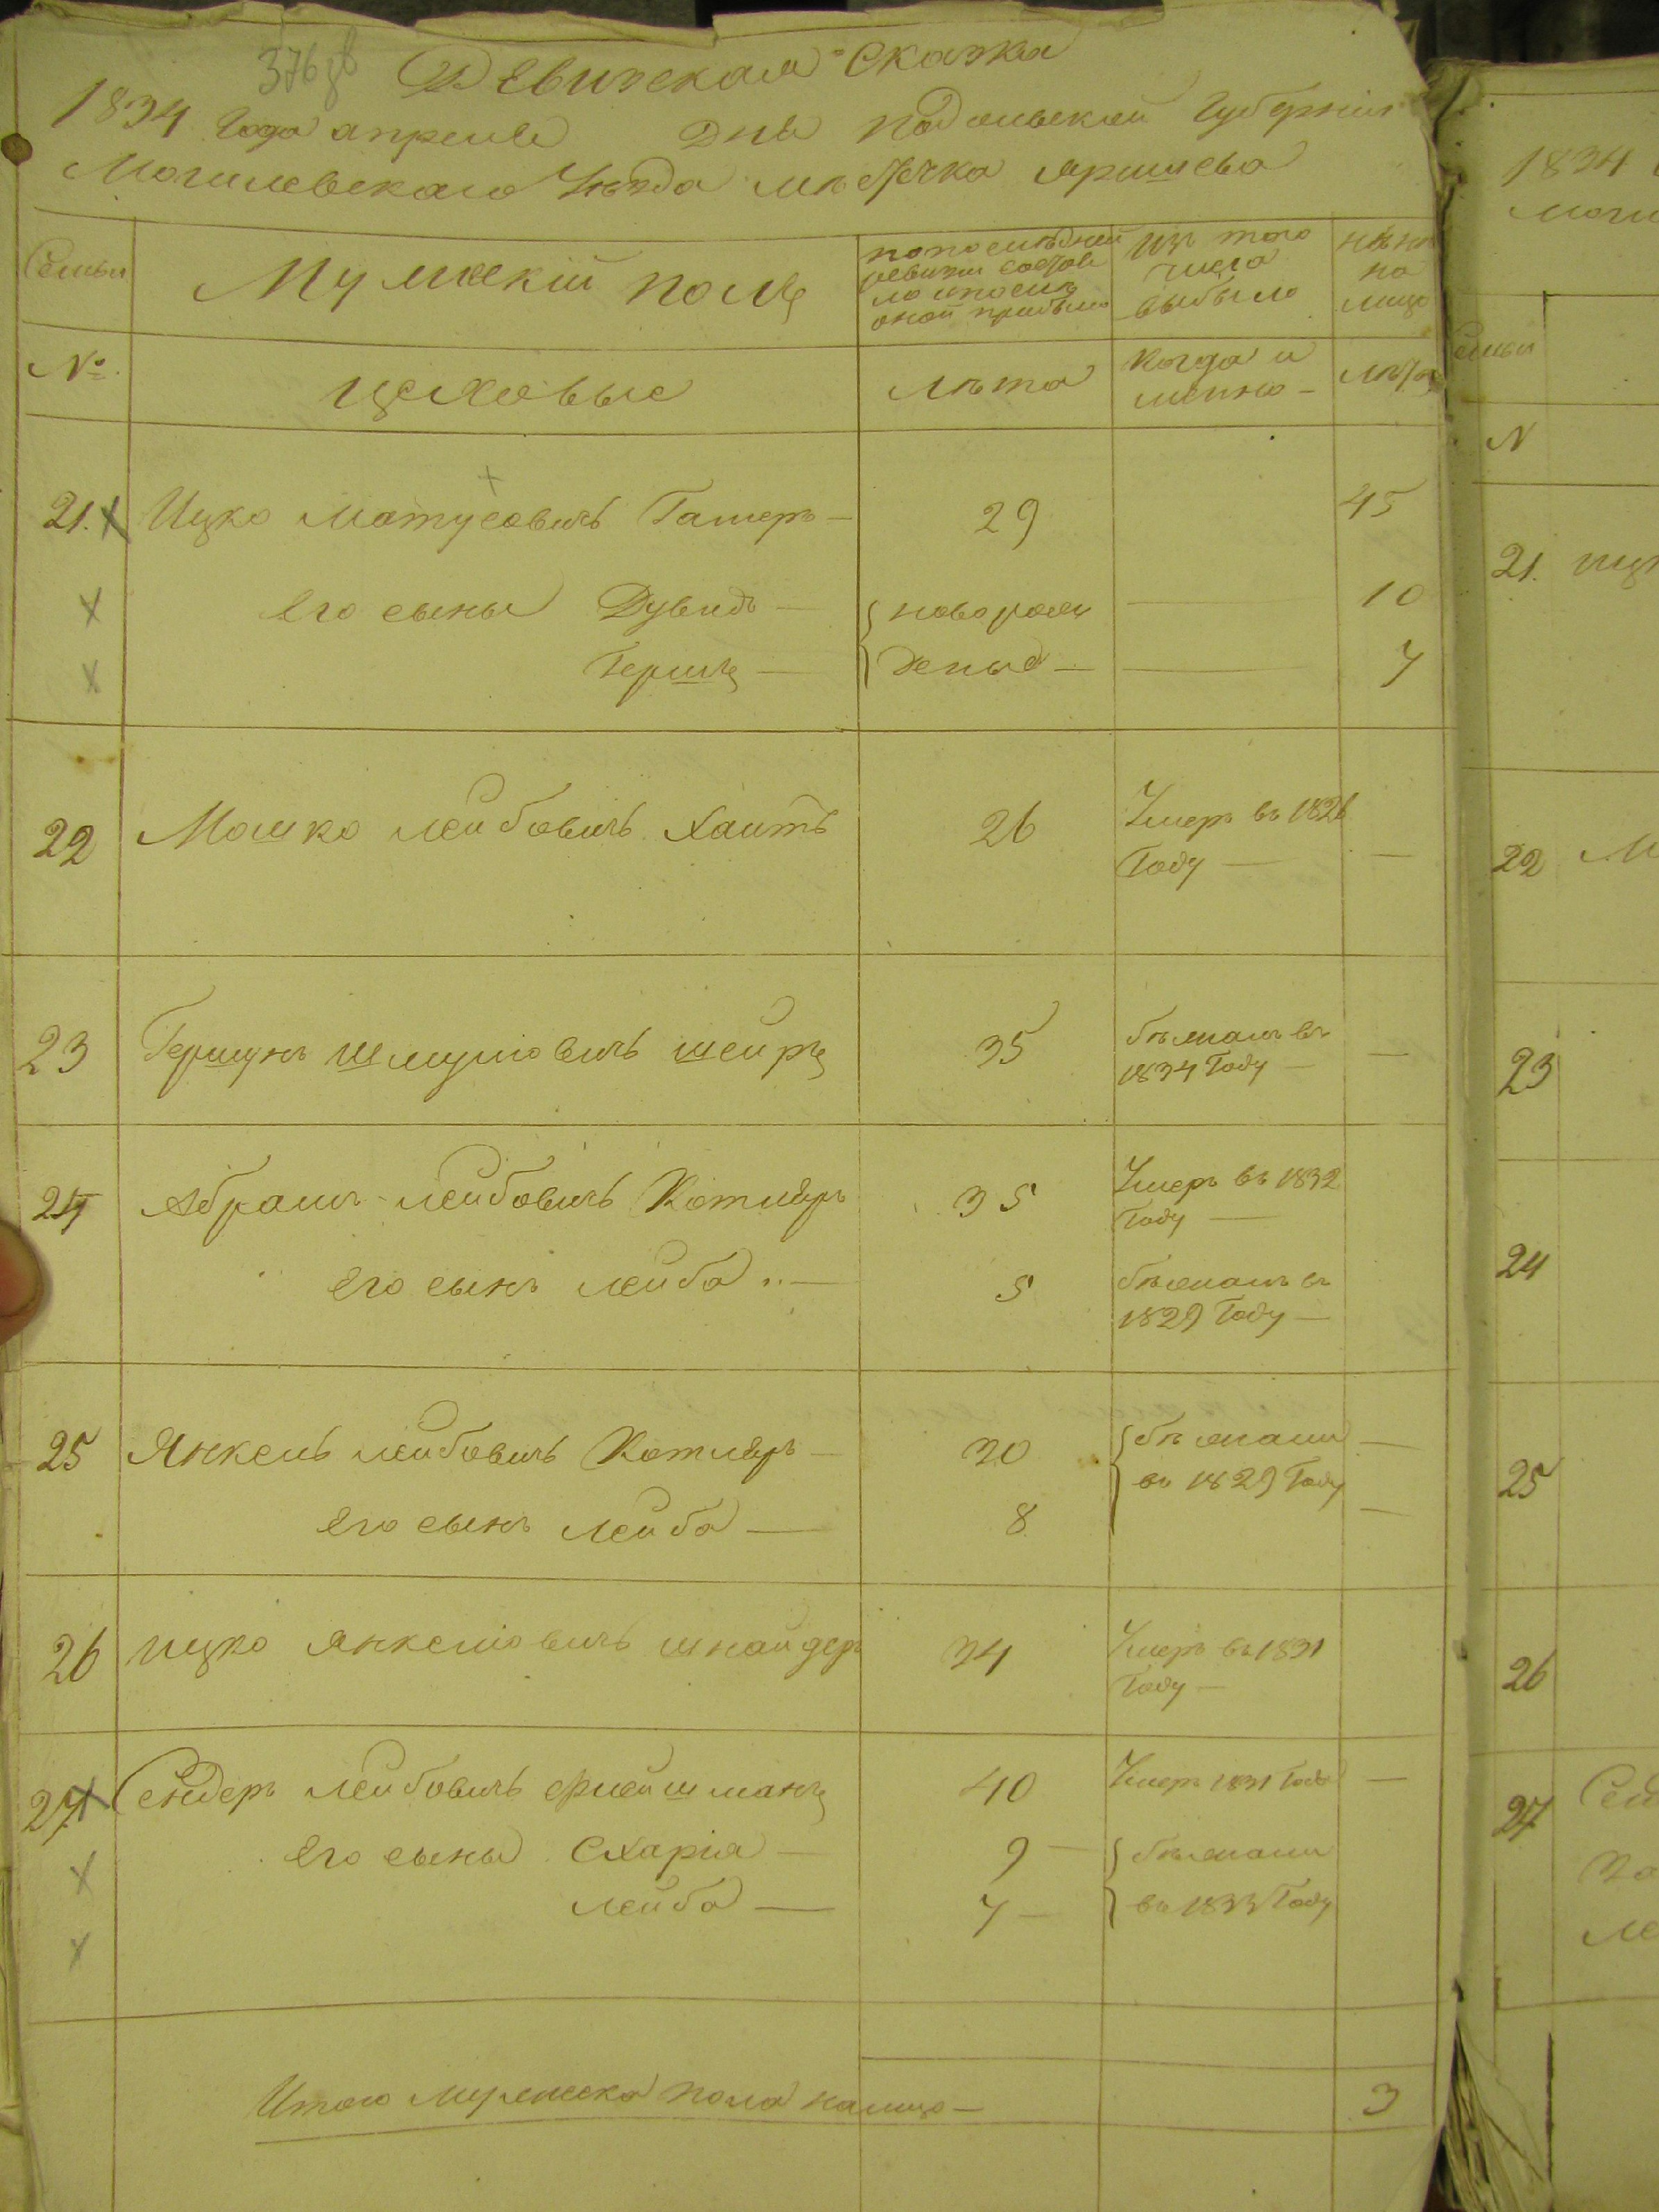 376 зв
Ревизская Сказка
1834 Года апреля Дня Подольской Губернии
Могилевскаго Уезда местечка Яришева
Семьи
Мужский полъ
по последней ревизии состояло и после оной прибыло
Изъ того числа выбыло
ныне на лицо
№
цеховые
лета
Когда имянно -
лета
21. Ицко Матусовичъ Гашеръ — 29 45
Его сыны Дувидъ — { новорож — 10
Гершъ — { денные — 7
22 Мошко Лейбовичъ Хаитъ 26 Умеръ въ 1826 Году — —
23 Гершунъ Шмулiовичъ шейръ 35 бежалъ въ 1834 Году — —
24 Абрамъ Лейбовичъ Котляръ 35 Умеръ въ 1832 Году —
Его сынъ Лейба — 5 бежалъ въ 1829 Году —
25 Янкель Лейбовичъ Котляръ — 30 { бежали —
Его сынъ Лейба — 8 въ 1829 Году —
26 Ицко Янкелiовичъ шнайдеръ 34 Умеръ въ 1831 Году —
27 Сендеръ Лейбовичъ Флейшманъ 40 Умеръ 1831 Года —
Его сыны Схарiя — 9 — { бежали
Лейба — 7 — въ 1833 Году
Итого мужеска пола налицо — 3
1834
Моги
Семьи
N
21. Ицк
22 М
23
24
25
26
27 Сен